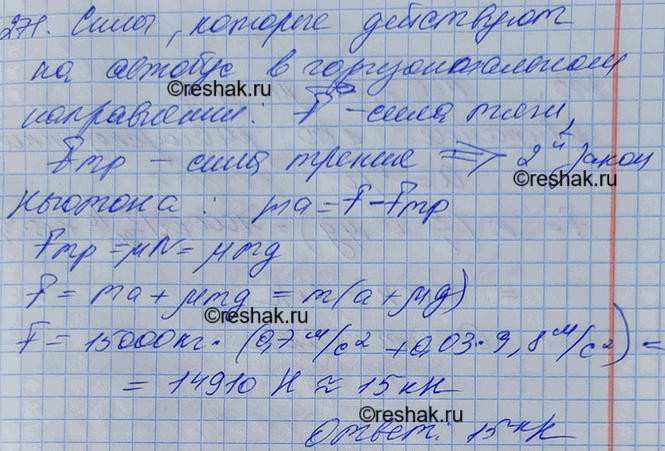 271. Силы, которые действуют
на автобус в горизонтальном
©reshak.ru
направлении: F⃗ - сила тяги,
Fтр - сила трение ⇒ 2й закон
©reshak.ru
Ньютона: ma = F - Fтр
Fтр = μN = μmg
F = ma + μmg = m(a + μg)
©reshak.ru
F = 15000кг · (0,7 м/с² + 0,03 · 9,8 м/с²) =
= 14910 Н ≈ 15 кН
©reshak.ru
Ответ: 15 кН